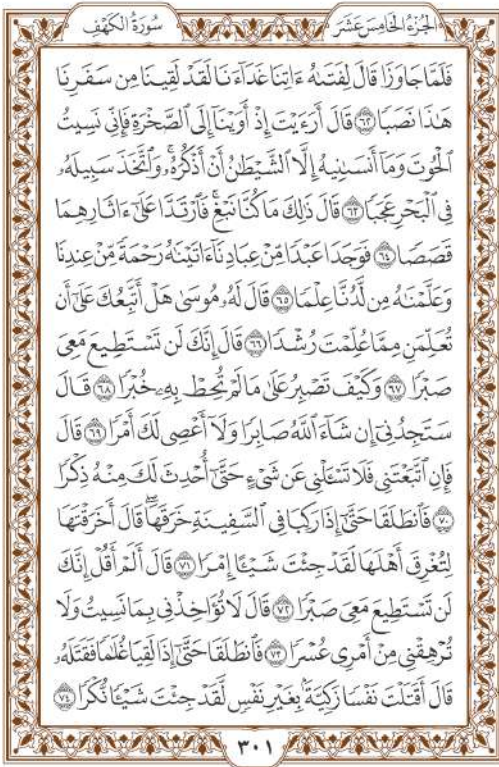 الجُزْءُ الخَامِسَ عَشَرَ
سُورَةُ الكَهْفِ
فَلَمَّا جَاوَزَا قَالَ لِفَتَىٰهُ ءَاتِنَا غَدَآءَنَا لَقَدْ لَقِينَا مِن سَفَرِنَا
هَٰذَا نَصَبًا ٦٢ قَالَ أَرَءَيْتَ إِذْ أَوَيْنَآ إِلَى ٱلصَّخْرَةِ فَإِنِّى نَسِيتُ
ٱلْحُوتَ وَمَآ أَنسَىٰنِيهُ إِلَّا ٱلشَّيْطَٰنُ أَنْ أَذْكُرَهُۥۚ وَٱتَّخَذَ سَبِيلَهُۥ
فِى ٱلْبَحْرِ عَجَبًا ٦٣ قَالَ ذَٰلِكَ مَا كُنَّا نَبْغِۚ فَٱرْتَدَّا عَلَىٰٓ ءَاثَارِهِمَا
قَصَصًا ٦٤ فَوَجَدَا عَبْدًا مِّنْ عِبَادِنَآ ءَاتَيْنَٰهُ رَحْمَةً مِّنْ عِندِنَا
وَعَلَّمْنَٰهُ مِن لَّدُنَّا عِلْمًا ٦٥ قَالَ لَهُۥ مُوسَىٰ هَلْ أَتَّبِعُكَ عَلَىٰٓ أَن
تُعَلِّمَنِ مِمَّا عُلِّمْتَ رُشْدًا ٦٦ قَالَ إِنَّكَ لَن تَسْتَطِيعَ مَعِىَ
صَبْرًا ٦٧ وَكَيْفَ تَصْبِرُ عَلَىٰ مَا لَمْ تُحِطْ بِهِۦ خُبْرًا ٦٨ قَالَ
سَتَجِدُنِىٓ إِن شَآءَ ٱللَّهُ صَابِرًا وَلَآ أَعْصِى لَكَ أَمْرًا ٦٩ قَالَ
فَإِنِ ٱتَّبَعْتَنِى فَلَا تَسْـَٔلْنِى عَن شَىْءٍ حَتَّىٰٓ أُحْدِثَ لَكَ مِنْهُ ذِكْرًا
٧٠ فَٱنطَلَقَا حَتَّىٰٓ إِذَا رَكِبَا فِى ٱلسَّفِينَةِ خَرَقَهَاۖ قَالَ أَخَرَقْتَهَا
لِتُغْرِقَ أَهْلَهَا لَقَدْ جِئْتَ شَيْـًٔا إِمْرًا ٧١ قَالَ أَلَمْ أَقُلْ إِنَّكَ
لَن تَسْتَطِيعَ مَعِىَ صَبْرًا ٧٢ قَالَ لَا تُؤَاخِذْنِى بِمَا نَسِيتُ وَلَا
تُرْهِقْنِى مِنْ أَمْرِى عُسْرًا ٧٣ فَٱنطَلَقَا حَتَّىٰٓ إِذَا لَقِيَا غُلَٰمًا فَقَتَلَهُۥ
قَالَ أَقَتَلْتَ نَفْسًا زَكِيَّةًۢ بِغَيْرِ نَفْسٍ لَّقَدْ جِئْتَ شَيْـًٔا نُّكْرًا ٧٤
٣٠١